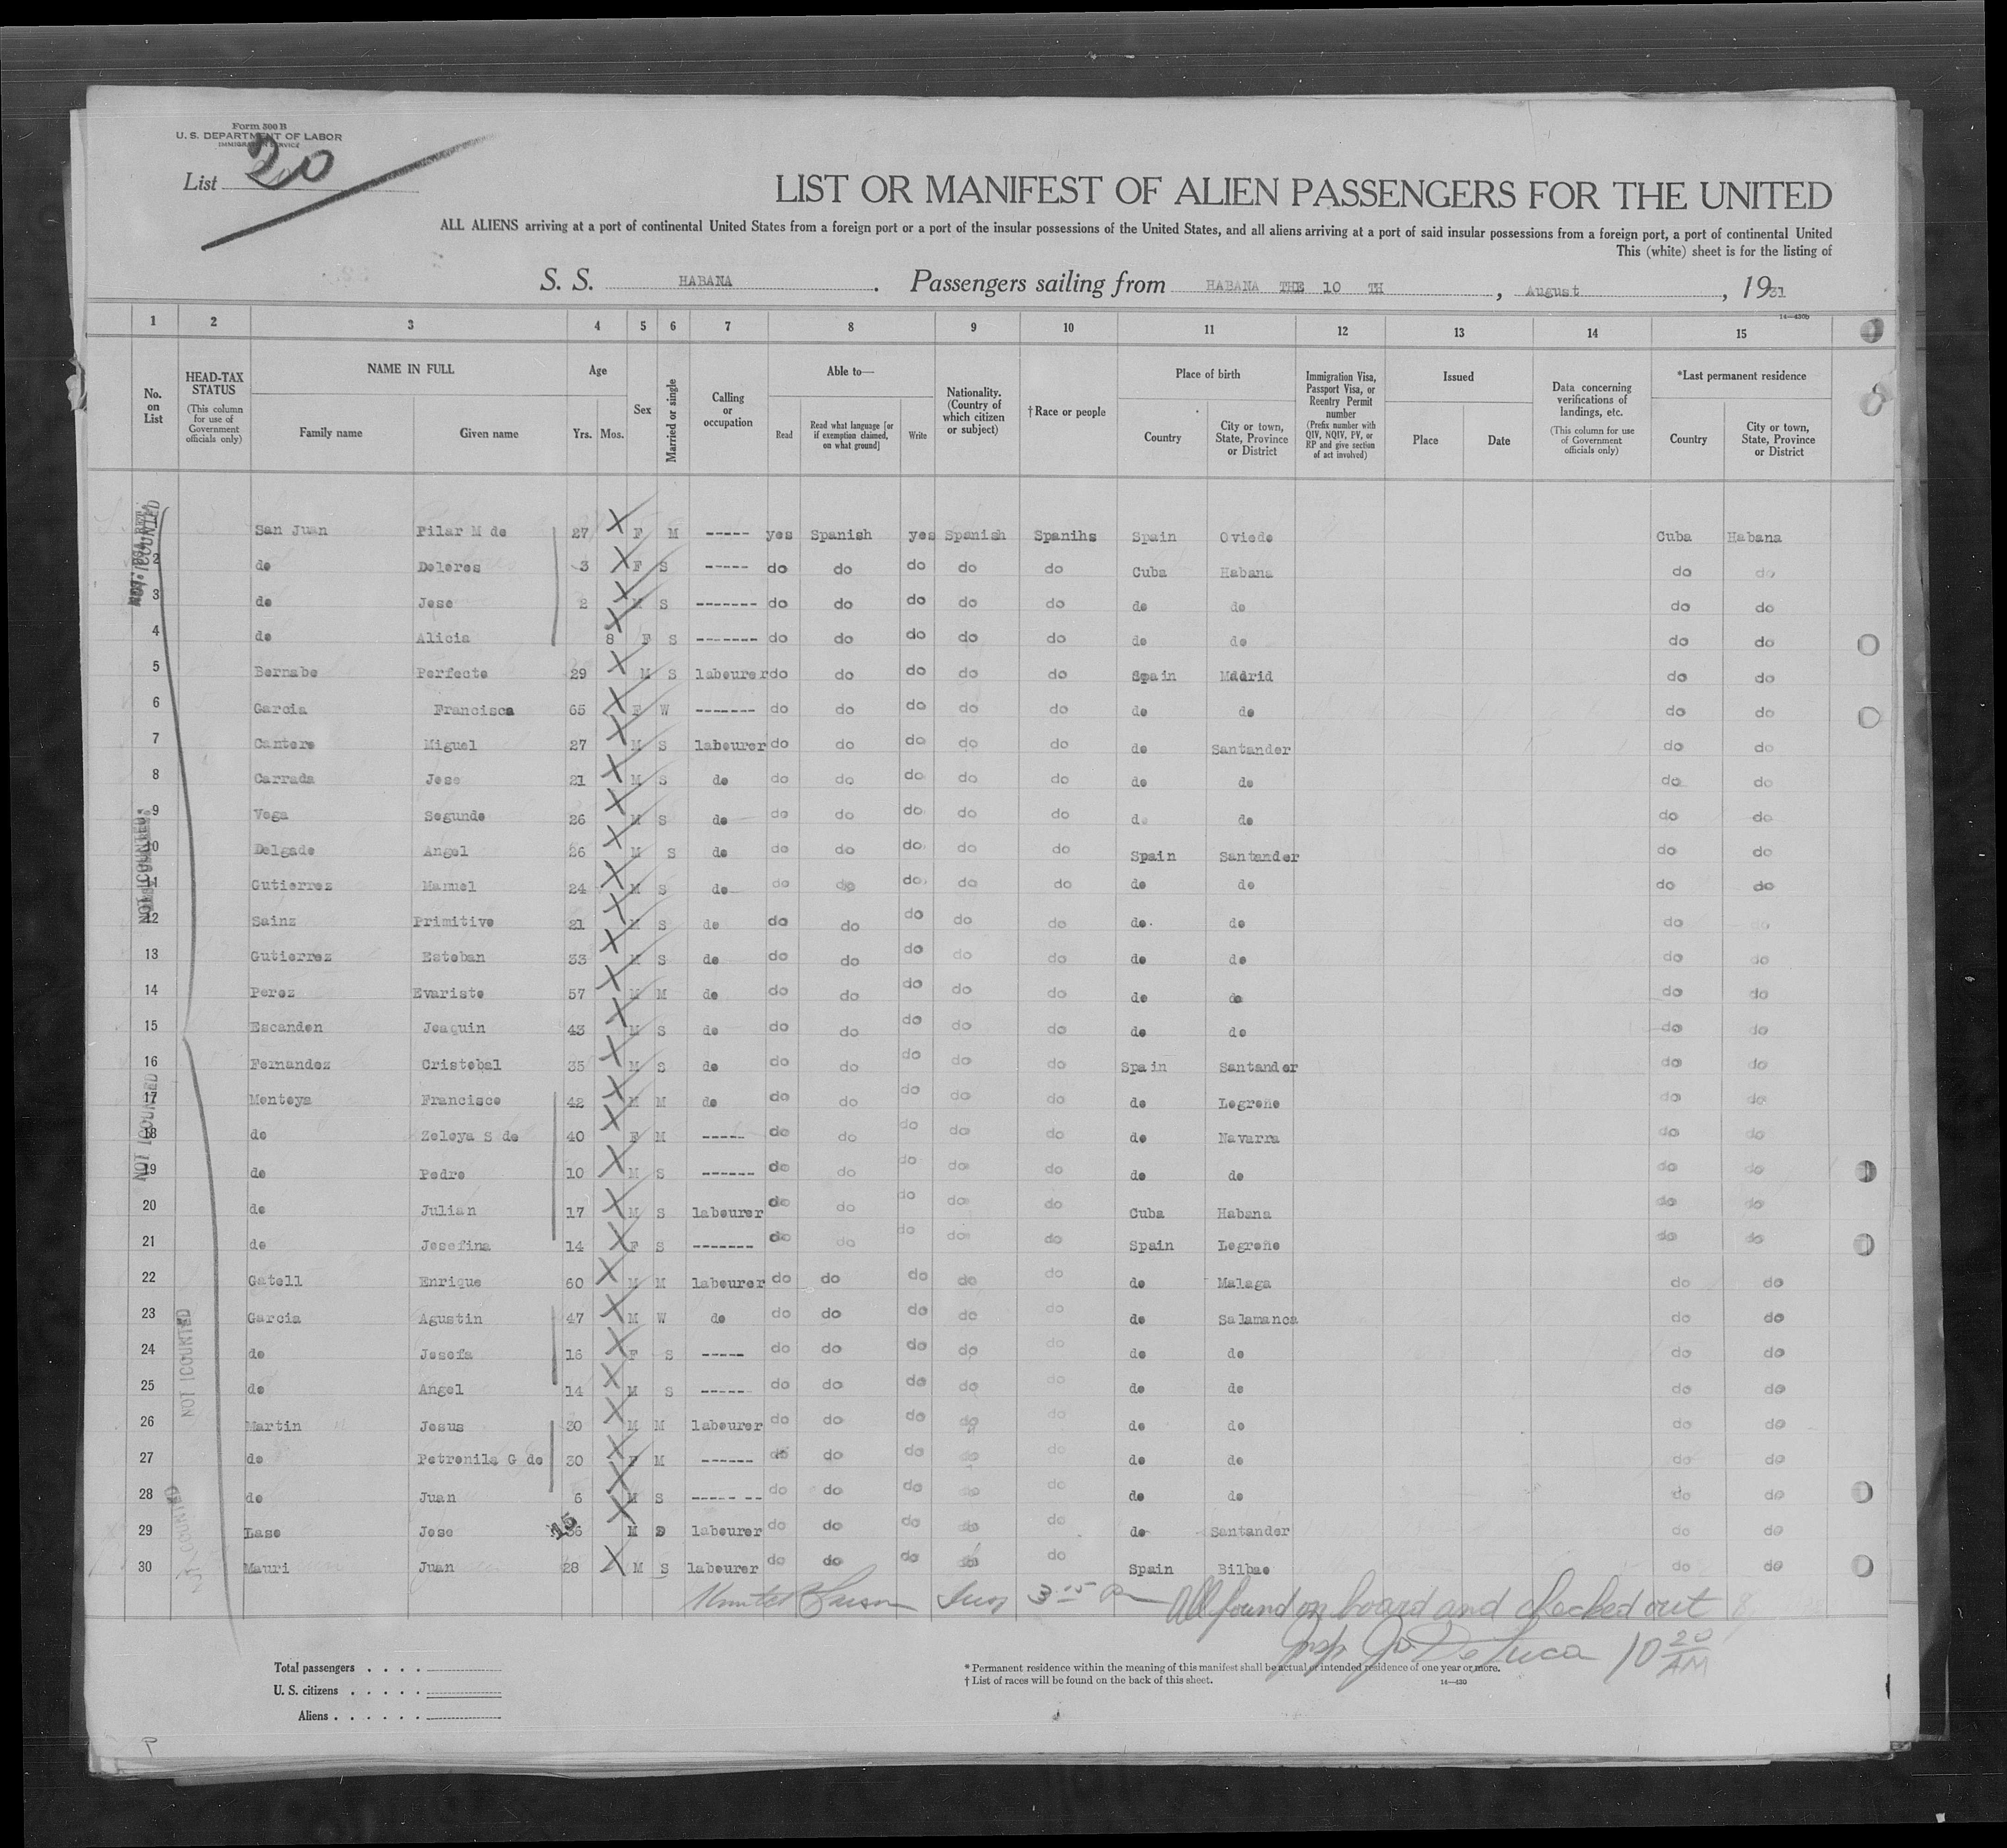 Form 500 B
U. S. DEPARTMENT OF LABOR
IMMIGRATION SERVICE
List 20
LIST OR MANIFEST OF ALIEN PASSENGERS FOR THE UNITED
ALL ALIENS arriving at a port of continental United States from a foreign port or a port of the insular possessions of the United States, and all aliens arriving at a port of said insular possessions from a foreign port, a port of continental United
This (white) sheet is for the listing of
S. S. HABANA . Passengers sailing from HABANA THE 10 TH , August , 1931
14—430b
1 2 3 4 5 6 7 8 9 10 11 12 13 14 15
No. on List
HEAD-TAX STATUS (This column for use of Government officials only)
NAME IN FULL Family name Given name
Age Yrs. Mos.
Sex
Married or single
Calling or occupation
Able to— Read Read what language [or if exemption claimed, on what ground] Write
Nationality. (Country of which citizen or subject)
†Race or people
Place of birth Country City or town, State, Province or District
Immigration Visa, Passport Visa, or Reentry Permit number (Prefix number with QIV, NQIV, PV, or RP and give section of act involved)
Issued Place Date
Data concerning verifications of landings, etc. (This column for use of Government officials only)
*Last permanent residence Country City or town, State, Province or District
San Juan Pilar M de 27 F M ----- yes Spanish yes Spanish Spanihs Spain Oviedo Cuba Habana
2 do Dolores 3 F S ----- do do do do do Cuba Habana do do
3 do Jose 2 M S ------- do do do do do do do do do
4 do Alicia 8 F S ------- do do do do do do do do do
5 Bernabe Perfecto 29 M S labourer do do do do do Spain Mddrid do do
6 Garcia Francisca 65 F W ------- do do do do do do do do do
7 Cantero Miguel 27 M S labourer do do do do do do Santander do do
8 Carrada Jose 21 M S do do do do do do do do do do
9 Vega Segundo 26 M S do do do do do do do do do do
10 Delgado Angel 26 M S do do do do do do Spain Santander do do
11 Gutierrez Manuel 24 M S do do do do do do do do do do
12 Sainz Primitivo 21 M S do do do do do do do do do do
13 Gutierrez Esteban 33 M S do do do do do do do do do do
14 Perez Evaristo 57 M M do do do do do do do do do do
15 Escandon Joaquin 43 M S do do do do do do do do do do
16 Fernandez Cristobal 35 M S do do do do do do Spain Santander do do
17 Montoya Francisco 42 M M do do do do do do do Logroño do do
18 do Zoloya S de 40 F M ----- do do do do do do Navarra do do
19 do Pedro 10 M S ------ do do do do do do do do do
20 do Julian 17 M S labourer do do do do do Cuba Habana do do
21 do Josefina 14 F S ------- do do do do do Spain Logroño do do
22 Gatell Enrique 60 M M labourer do do do do do do Malaga do do
23 Garcia Agustin 47 M W do do do do do do do Salamanca do do
24 do Josefa 16 F S ----- do do do do do do do do do
25 do Angel 14 M S ----- do do do do do do do do do
26 Martin Jesus 30 M M labourer do do do do do do do do do
27 do Petronila G de 30 F M ------ do do do do do do do do do
28 do Juan 6 M S ----- -- do do do do do do do do do
29 Laso Jose 36 M labourer do do do do do do Santander do do
30 Mauri Juan 28 M S labourer do do do do do Spain Bilbao do do
15
NOT COUNTED
NOT COUNTED
NOT COUNTED
NOT COUNTED
Insp 3 15 P
All found on board and checked out
Insp. De Luca 10 20 AM
Total passengers . . . .
U. S. citizens . . . . .
Aliens . . . . . .
* Permanent residence within the meaning of this manifest shall be actual or intended residence of one year or more.
† List of races will be found on the back of this sheet.
14—430
P